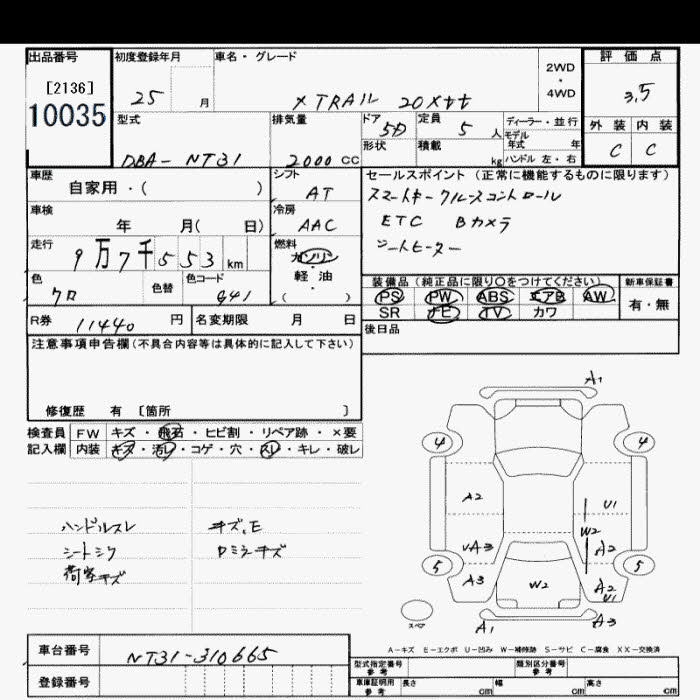 出品番号
[2136]
10035
初度登録年月
25 月
車名・グレード
X TRAIL 20Xtt
2WD
・
4WD
評価点
3,5
外装 内装
C C
型式
DBA- NT31
排気量
2000 CC
ドア 5D
形状
定員 5 人
積載 kg
ディーラー・並行
モデル
年式 年
ハンドル 左・右
車歴
自家用・( )
シフト
AT
車検
年 月( 日)
冷房
AAC
走行
9万7千553 km
燃料
ガソリン
・
軽・油
( )
色
クロ
色替
色コード
G41
R券 11440 円
名変期限 月 日
セールスポイント (正常に機能するものに限ります)
スマートキー クルーズコントロール
ETC Bカメラ
シートヒーター
装備品 (純正品に限り○をつけてください)
PS PW ABS エアB AW
SR ナビ TV カワ
新車保証書
有・無
後日品
注意事項申告欄 (不具合内容等は具体的に記入して下さい)
修復歴 有 [箇所 ]
検査員
記入欄
FW キズ・飛石・ヒビ割・リペア跡・×要
内装 キズ・汚レ・コゲ・穴・スレ・キレ・破レ
ハンドルスレ
シートシワ
荷室キズ
キズ、E
ロミラーキズ
A1
4 4
A2 U1
W2
UA3 A2
5 5
A3 W2 A2
U1
スペア
A1 A3
A-キズ E-エクボ U-凹み W-補修跡 S-サビ C-腐食 XX-交換済
車台番号
NT31-310665
登録番号
型式指定番号
参考
類別区分番号
参考
車庫証明用
参考
長さ cm 幅 cm 高さ cm